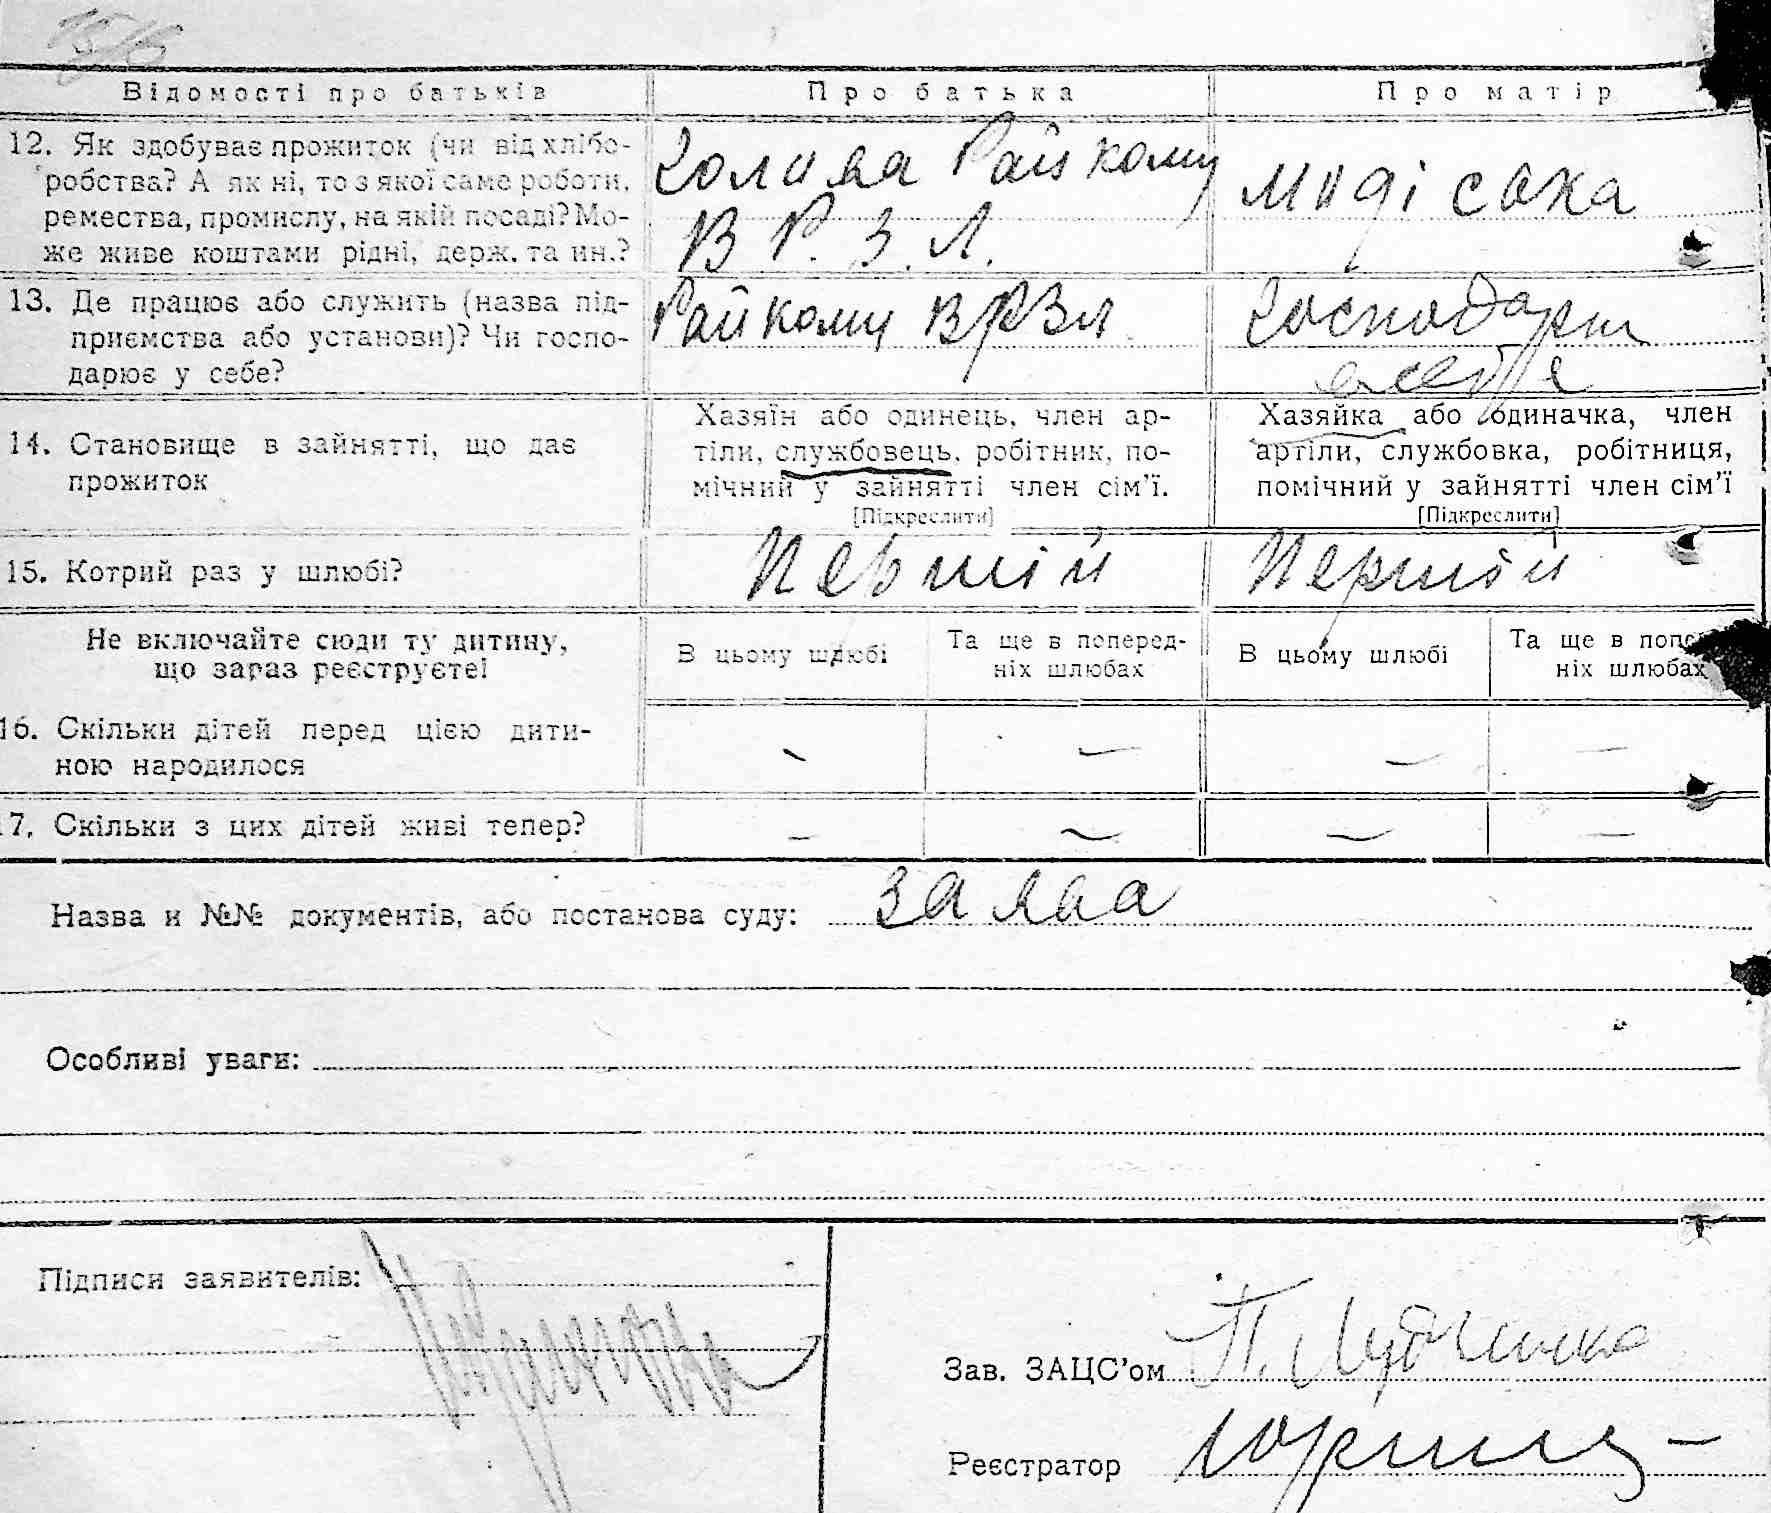 Відомості про батьків Про батька Про матір
12. Як здобуває прожиток (чи від хлібо- Голова Райкому модістка
робства? А як ні, то з якої саме роботи,
ремества, промислу, на якій посаді? Мо- В Р. З. Л.
же живе коштами рідні, держ. та ин.?
13. Де працює або служить (назва під- Райкому ВРЗЛ Господарює
приємства або установи)? Чи госпо-
дарює у себе? в себе
Хазяїн або одинець, член ар- Хазяйка або одиначка, член
14. Становище в зайнятті, що дає тіли, службовець, робітник, по- артіли, службовка, робітниця,
прожиток мічний у зайнятті член сім’ї. помічний у зайнятті член сім’ї
[Підкреслити] [Підкреслити]
15. Котрий раз у шлюбі? Першій Першій
Не включайте сюди ту дитину, В цьому шлюбі Та ще в поперед- В цьому шлюбі Та ще в попе
що зараз реєструєте! ніх шлюбах ніх шлюбах
16. Скільки дітей перед цією дити- – – – –
ною народилося
17. Скільки з цих дітей живі тепер? – – – –
Назва и №№ документів, або постанова суду: заява
Особливі уваги:
Підписи заявителів:
Зав. ЗАЦС’ом П.
Реєстратор